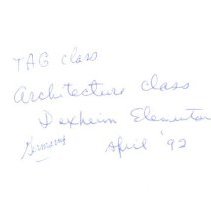 TAG class
Architecture class
Dexheim Elementar
Germany April '92